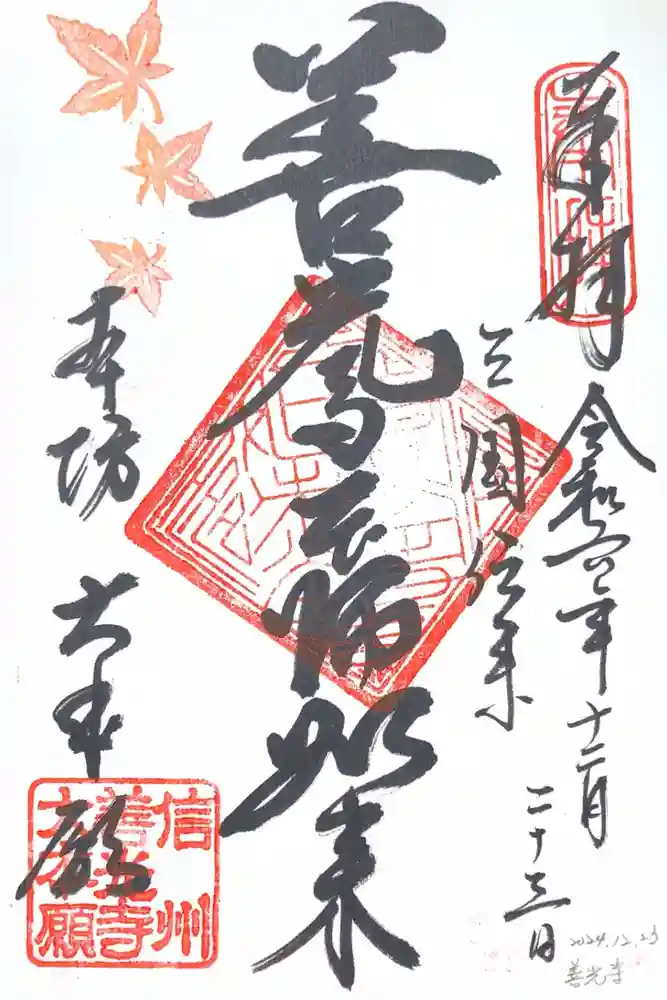 奉拝
令和六年十二月
二十三日
三国伝来
善
如来
本坊
大本願
信州
善光寺
大本願
2024.12.23
善光寺